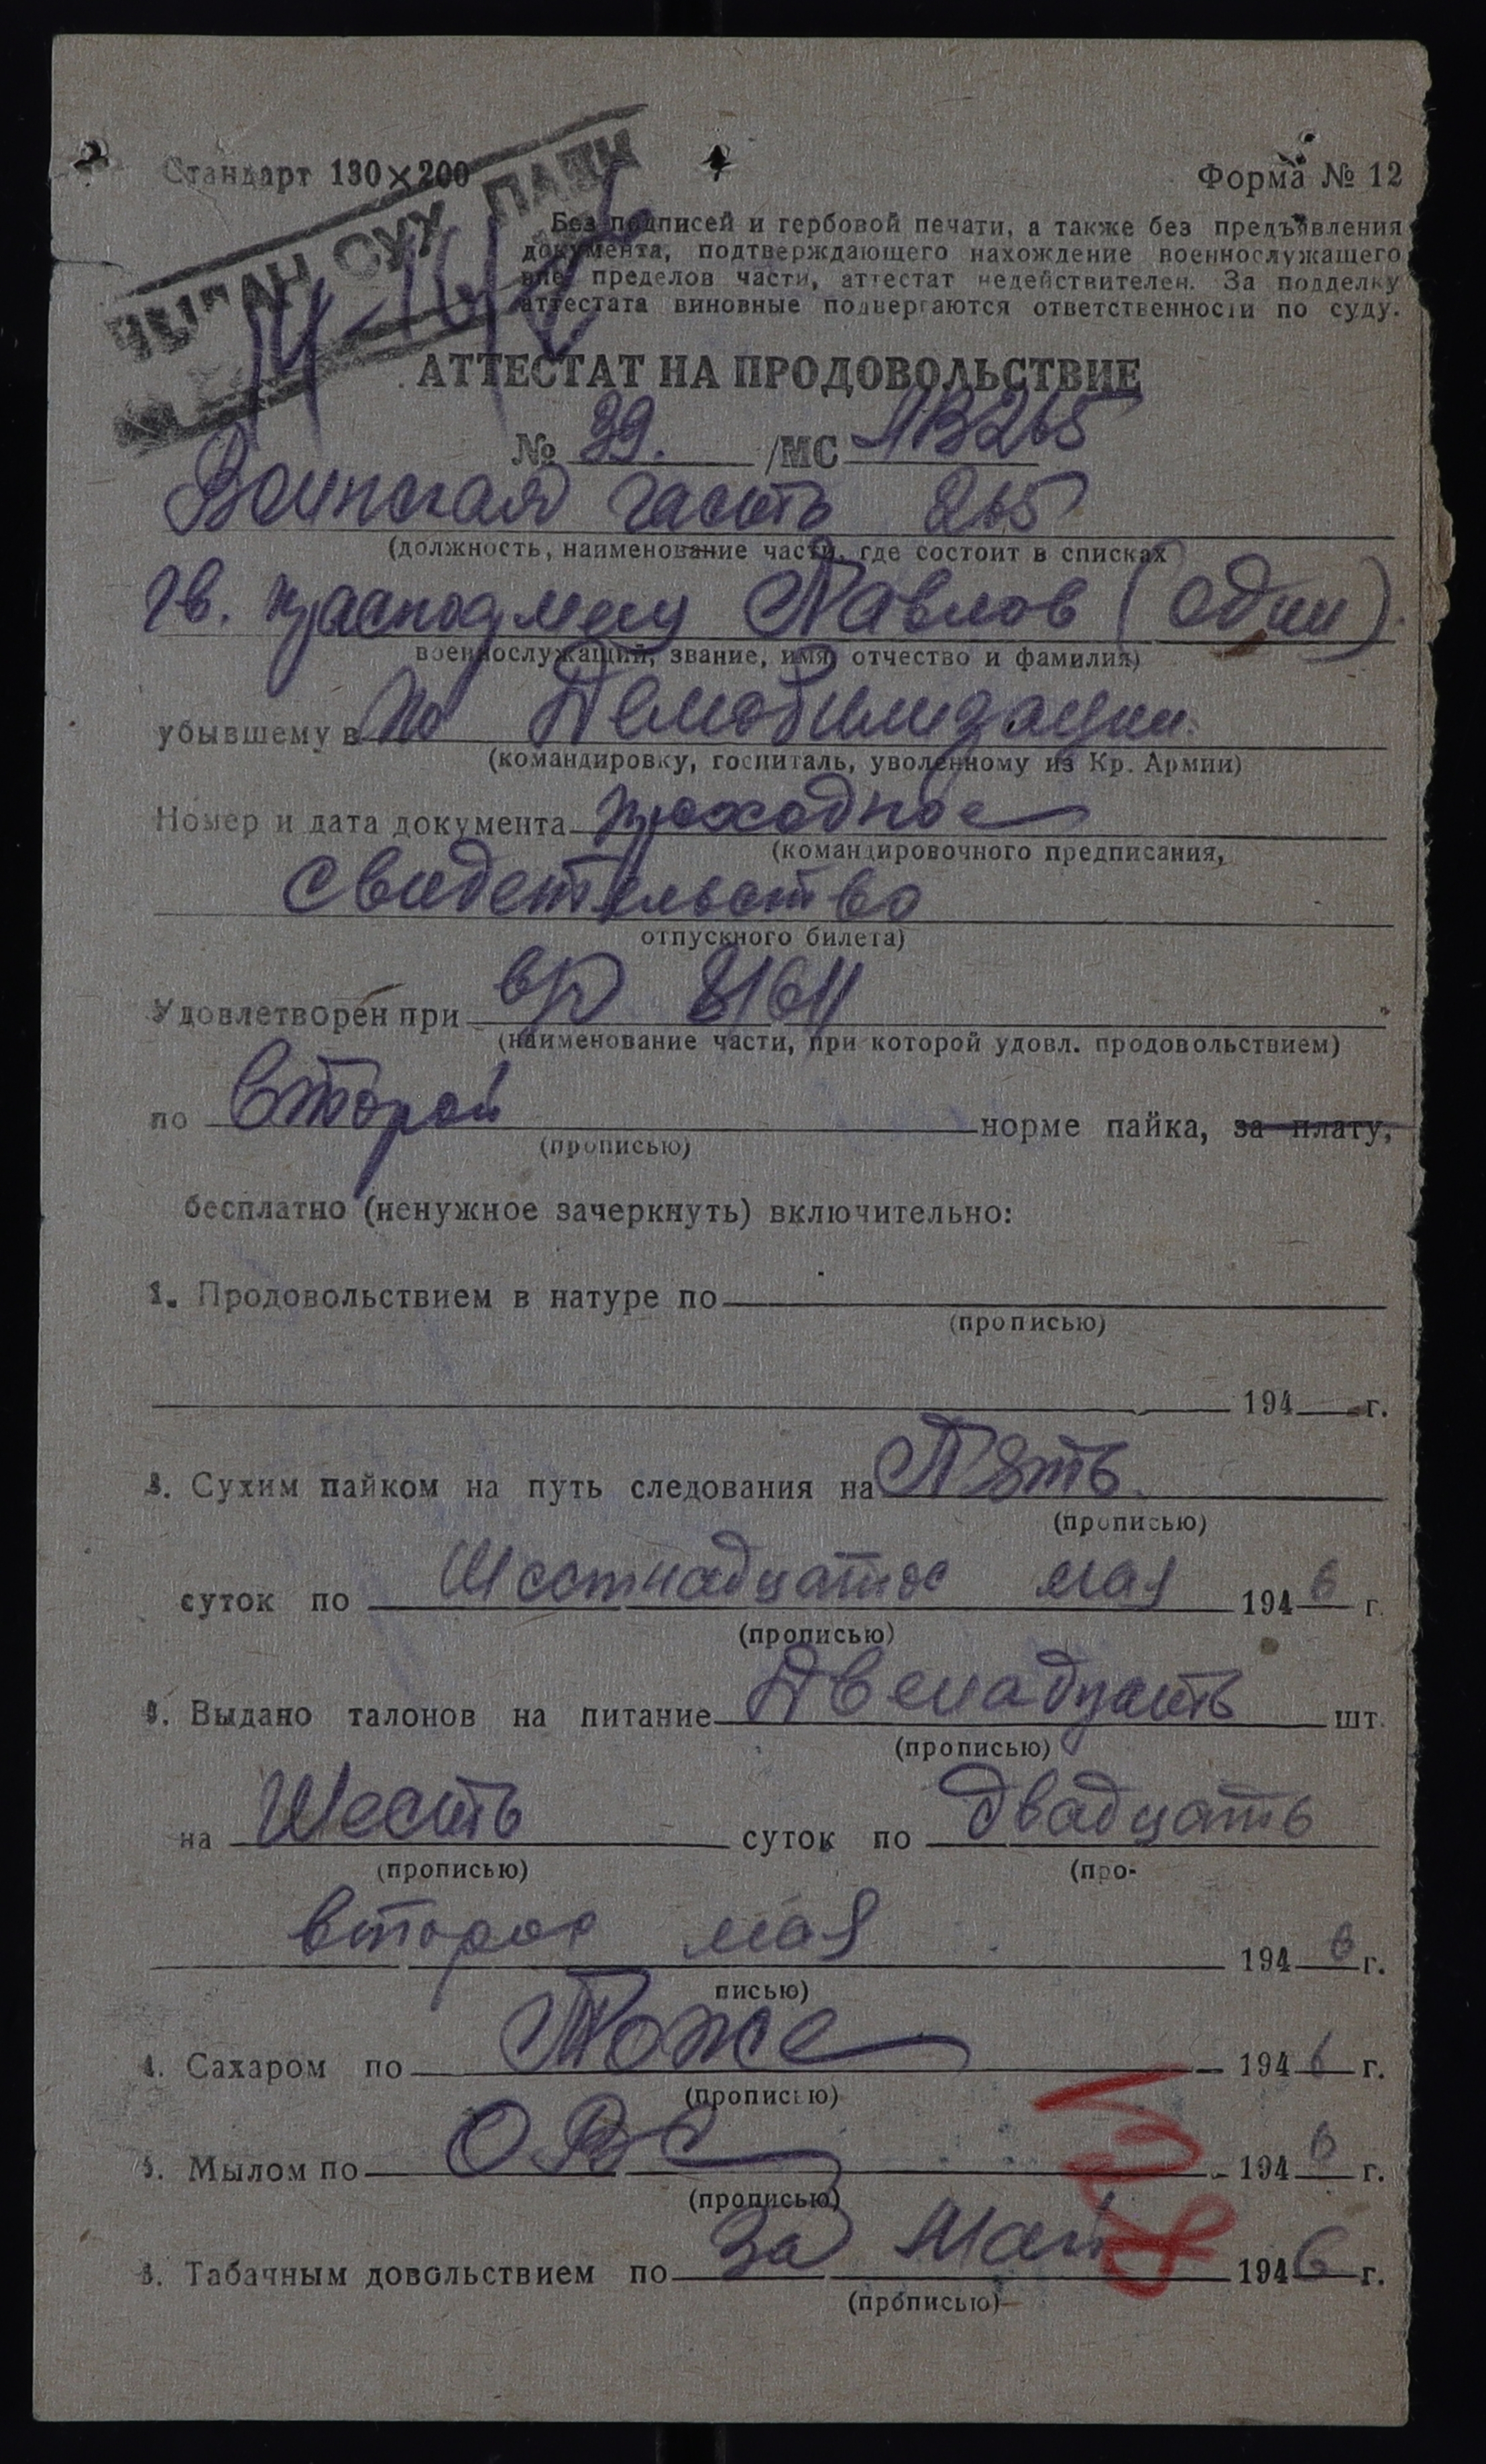 Стандарт 130×200
Форма № 12
СУХ ПАЕК
Без подписей и гербовой печати, а также без предъявления
документа, подтверждающего нахождение военнослужащего
вне пределов части, аттестат недействителен. За подделку
аттестата виновные подвергаются ответственности по суду.
АТТЕСТАТ НА ПРОДОВОЛЬСТВИЕ
№ 39. /МС АВ265
Воинская часть 265
(должность, наименование части, где состоит в списках
гв. Павлов (один).
военнослужащий, звание, имя, отчество и фамилия)
убывшему в по Демобилизации.
(командировку, госпиталь, уволенному из Кр. Армии)
Номер и дата документа проходное
(командировочного предписания,
свидетельство
отпускного билета)
Удовлетворен при
(наименование части, при которой удовл. продовольствием)
по второй норме пайка, за плату,
(прописью)
бесплатно (ненужное зачеркнуть) включительно:
1. Продовольствием в натуре по
(прописью)
194 г.
2. Сухим пайком на путь следования на Пять
(прописью)
суток по Шестнадцатое мая 1946 г.
(прописью)
3. Выдано талонов на питание Двенадцать шт.
(прописью)
на Шесть суток по двадцать
(прописью) (про-
второе мая 1946 г.
писью)
4. Сахаром по Тоже 1946 г.
(прописью)
5. Мылом по 1946 г.
(прописью)
6. Табачным довольствием по За Май 1946 г.
(прописью)